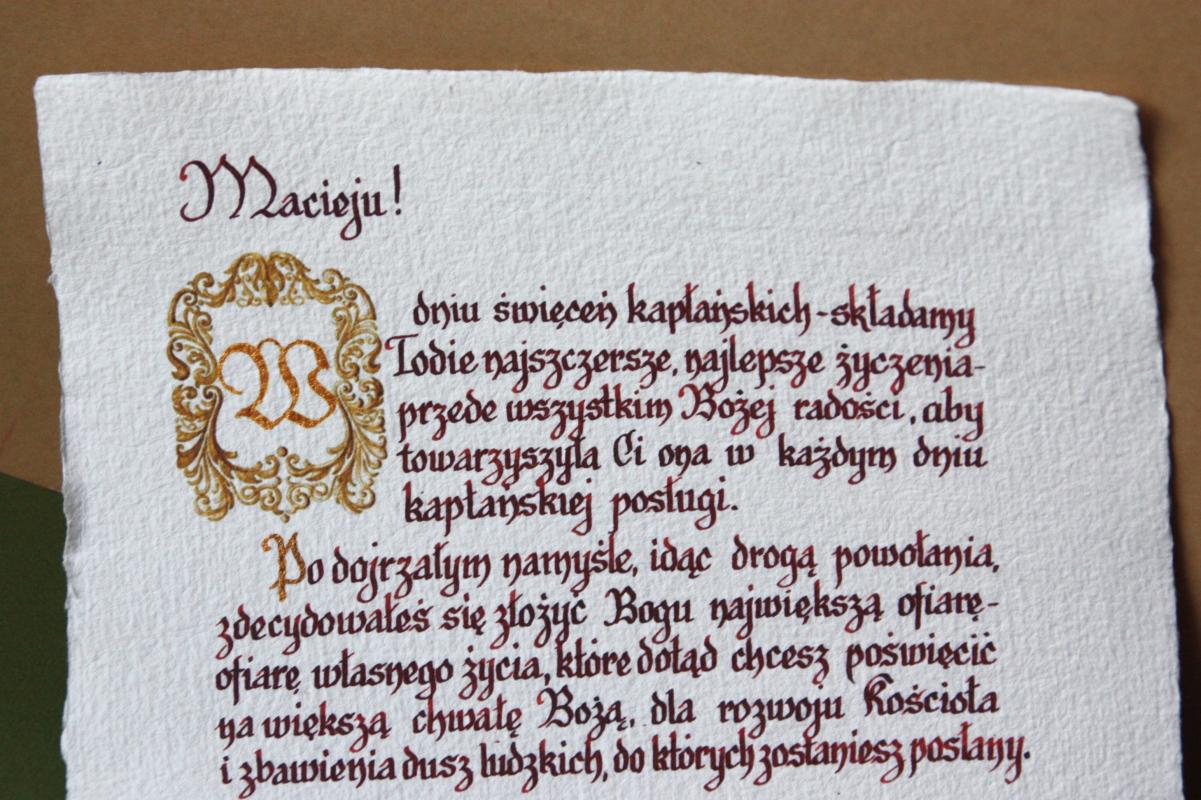 Macieju!
W dniu święceń kapłańskich - składamy
Tobie najszczersze, najlepsze życzenia -
przede wszystkim Bożej radości, aby
towarzyszyła Ci ona w każdym dniu
kapłańskiej posługi.
Po dojrzałym namyśle, idąc drogą powołania,
zdecydowałeś się złożyć Bogu największą ofiarę -
ofiarę własnego życia, które dotąd chcesz poświęcić
na większą chwałę Bożą, dla rozwoju Kościoła
i zbawienia dusz ludzkich, do których zostaniesz posłany.